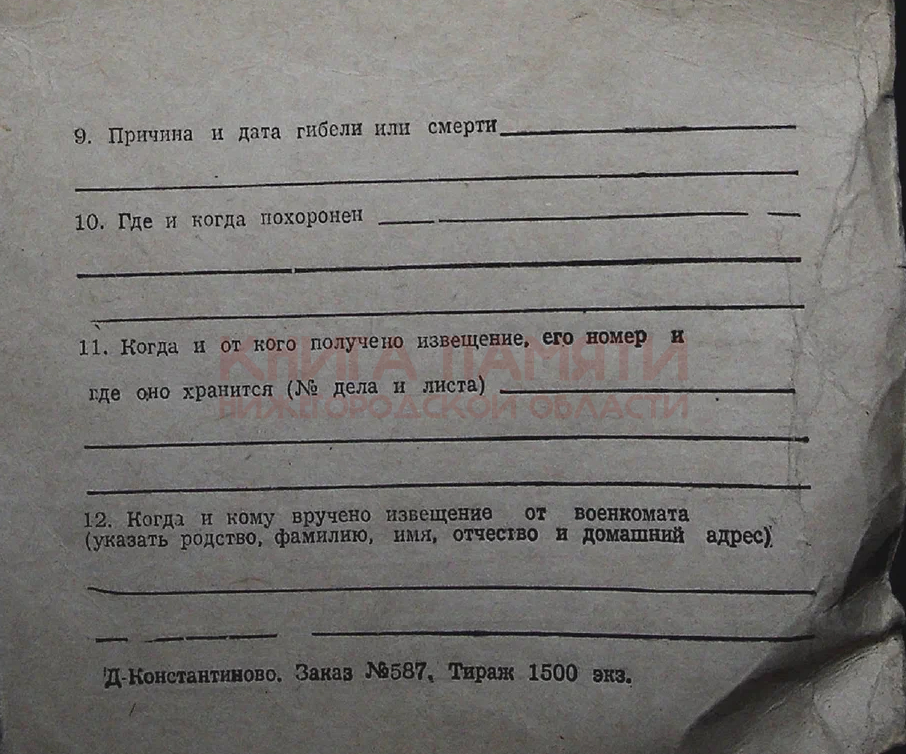 9. Причина и дата гибели или смерти
10. Где и когда похоронен
11. Когда и от кого получено извещение, его номер и
КНИГА ПАМЯТИ
где оно хранится (№ дела и листа)
НИЖЕГОРОДСКОЙ ОБЛАСТИ
12. Когда и кому вручено извещение от военкомата
(указать родство, фамилию, имя, отчество и домашний адрес)
Д-Константиново. Заказ №587, Тираж 1500 экз.